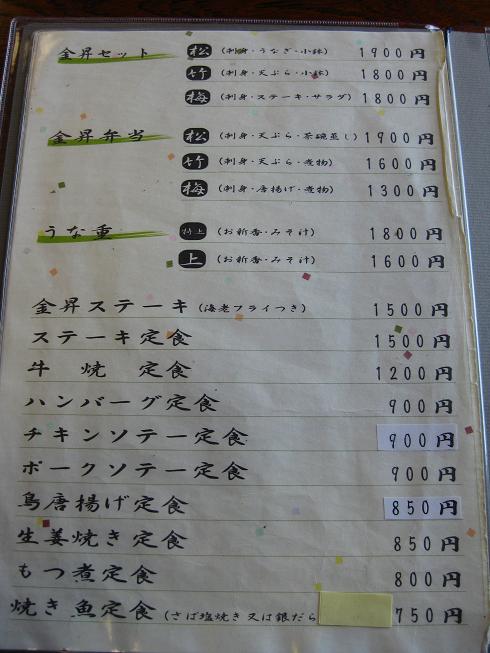 金昇セット 松 (刺身・うなぎ・小鉢) 1900円
竹 (刺身・天ぷら・小鉢) 1800円
梅 (刺身・ステーキ・サラダ) 1800円
金昇弁当 松 (刺身・天ぷら・茶碗蒸し) 1900円
竹 (刺身・天ぷら・煮物) 1600円
梅 (刺身・唐揚げ・煮物) 1300円
うな重 特上 (お新香・みそ汁) 1800円
上 (お新香・みそ汁) 1600円
金昇ステーキ (海老フライつき) 1500円
ステーキ定食 1500円
牛 焼 定食 1200円
ハンバーグ定食 900円
チキンソテー定食 900円
ポークソテー定食 900円
鳥唐揚げ定食 850円
生姜焼き定食 850円
もつ煮定食 800円
焼き魚定食 (さば塩焼き又は銀だら 750円